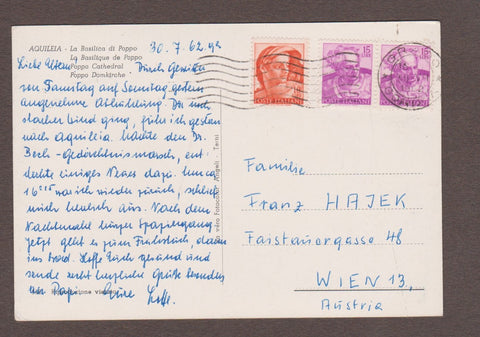 AQUILEIA - La Basilica di Poppo
La Basilique de Poppo
Poppo Cathedral
Poppo Domkirche
30.7.62
Liebe Eltern! Durch Gewitter
von Samstag auf Sonntag gestern
angenehme Abkühlung. Da noch
starker Wind ging, fuhr ich gestern
nach Aquileia, machte den Dr.
Bech-Gedächtnismarsch, ent-
deckte einiges Neues dazu. Um ca
16 war ich wieder zurück, schlief
mich herrlich aus. Nach dem
Nachtmahl kurzer Spaziergang.
Jetzt geht es zum Frühstück, dann
ins Bad. Hoffe Euch gesund und
sende recht herzliche Grüße besonders
an Papi. Eure
POSTE ITALIANE
15
POSTE ITALIANE
15
POSTE ITALIANE
Vera Fotocolor Angeli - Terni
Familie
Franz HAJEK
Faistauergasse 48
WIEN 13,
Austria